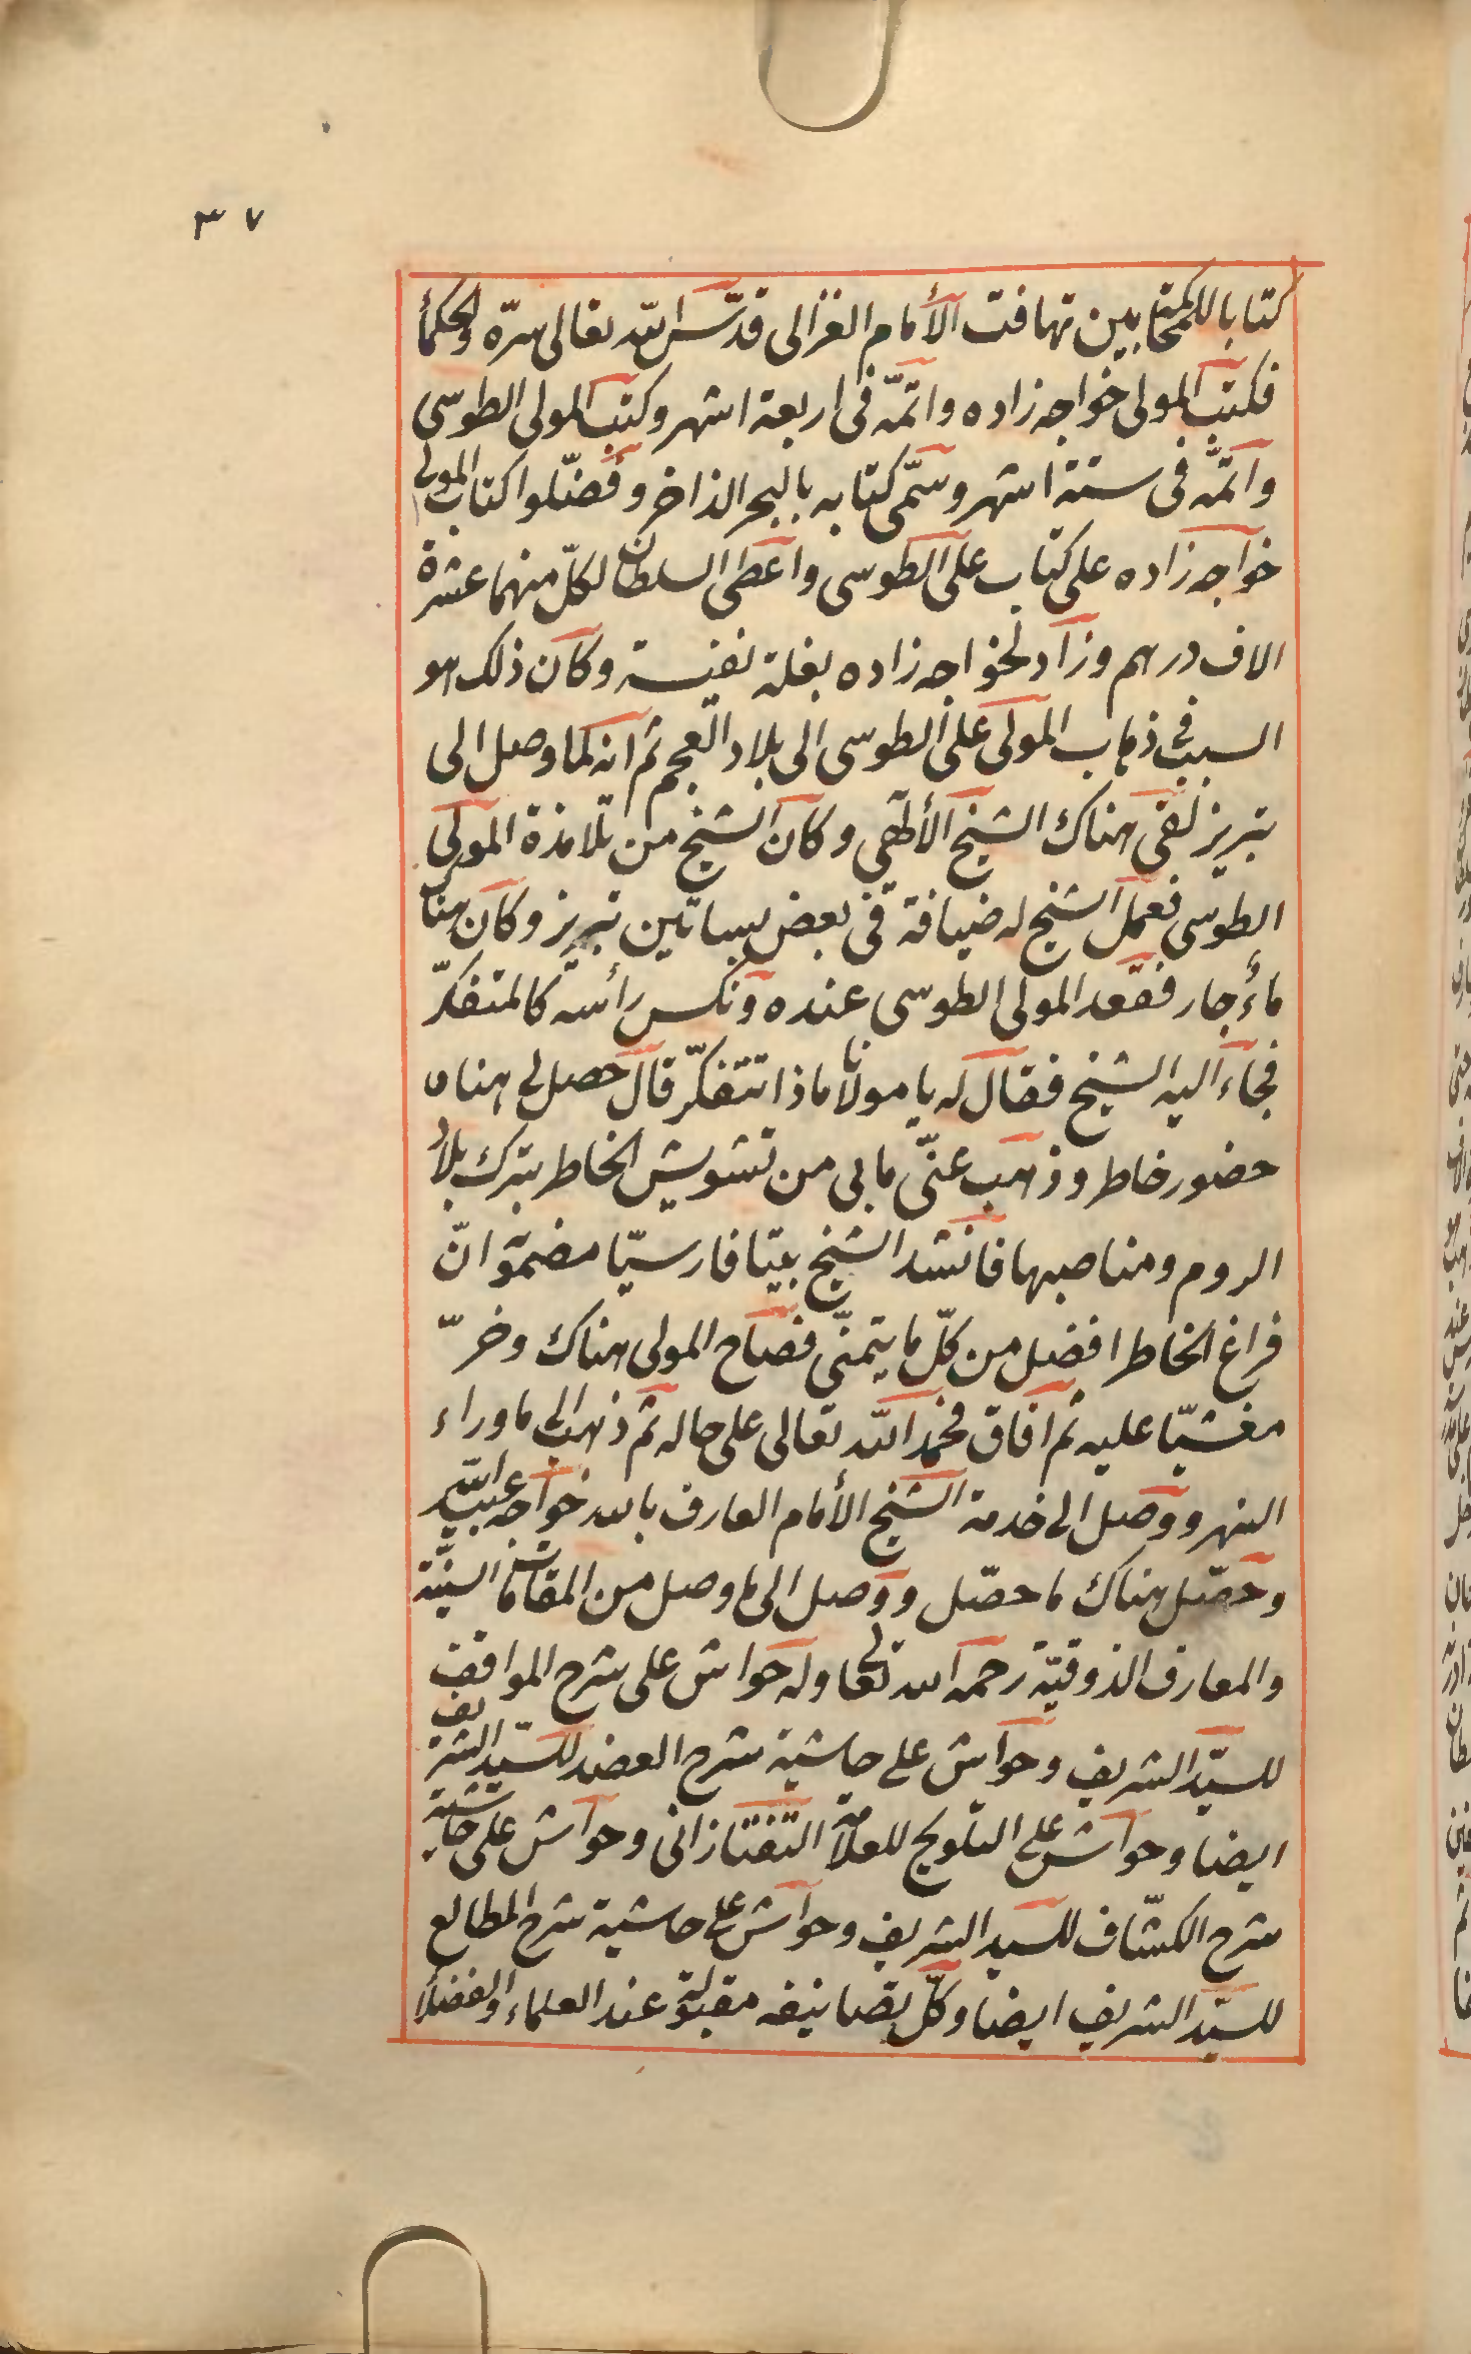 ٣٧
كتابا للمحاكمة بين تهافت الأمام الغزالى قدّس الله تعالى سرّه والحكمأ
فكتب المولى خواجه زاده واتمّه فى اربعة اشهر وكتب المولى الطوسى
واتمّه فى ستة اشهر وسمّى كتابه بالبحر الذاخر وفضّلوا كتاب المولى
خواجه زاده على كتاب على الطوسى واعطى السلطان لكلّ منهما عشرة
الاف درهم وزاد لخواجه زاده بغلة نفيسة وكان ذلك هو
السبب فى ذهاب المولى على الطوسى الى بلاد العجم ثم انه لما وصل الى
تبريز لقى هناك الشيخ الألهى وكان الشيخ من تلامذة المولى
الطوسى فعمل الشيخ له ضيافة فى بعض بساتين تبريز وكان هناك
ماءٌ جار فقعد المولى الطوسى عنده ونكس رأسه كالمتفكّر
فجاء اليه الشيخ فقال له يا مولانا ماذا تتفكّر قال حصل لى هناه
حضور خاطر وذهب عنّى مابى من تشويش الخاطر بترك بلاد
الروم ومناصبها فانشد الشيخ بيتا فارسيّا مضمونه انّ
فراغ الخاطر افضل من كلّ ما يتمنّى فصاح المولى هناك وخرّ
مغشيّا عليه ثم افاق فحمد الله تعالى على حاله ثم ذهب الى ماوراء
النهر ووصل الى خدمة الشيخ الأمام العارف بالله خواجه عبيد الله
وحصّل هناك ماحصّل ووصل الى ماوصل من المقامات السنيّة
والمعارف الذوقيّة رحمه الله تعالى وله حواش على شرح المواقف
للسيّد الشريف وحواش على حاشية شرح العضد للسيّد الشريف
ايضا وحواش على التلويح للعلامة التفتازانى وحواش على حاشية
شرح الكشّاف للسيد الشريف وحواش على حاشية شرح المطالع
للسيّد الشريف ايضا وكلّ تصانيفه مقبولة عند العلماء والفضلأ